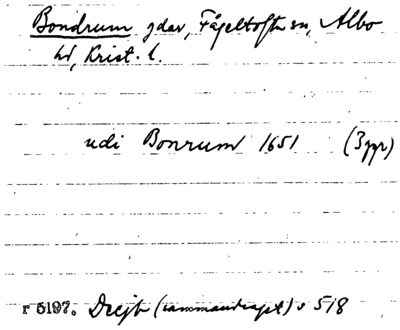 Bondrum gdar, Fågeltofta sn, Albo
hd, Krist. l.
udi Bonrum 1651 (3 ggr)
r 5197. Dsejb (sammandraget) s 518